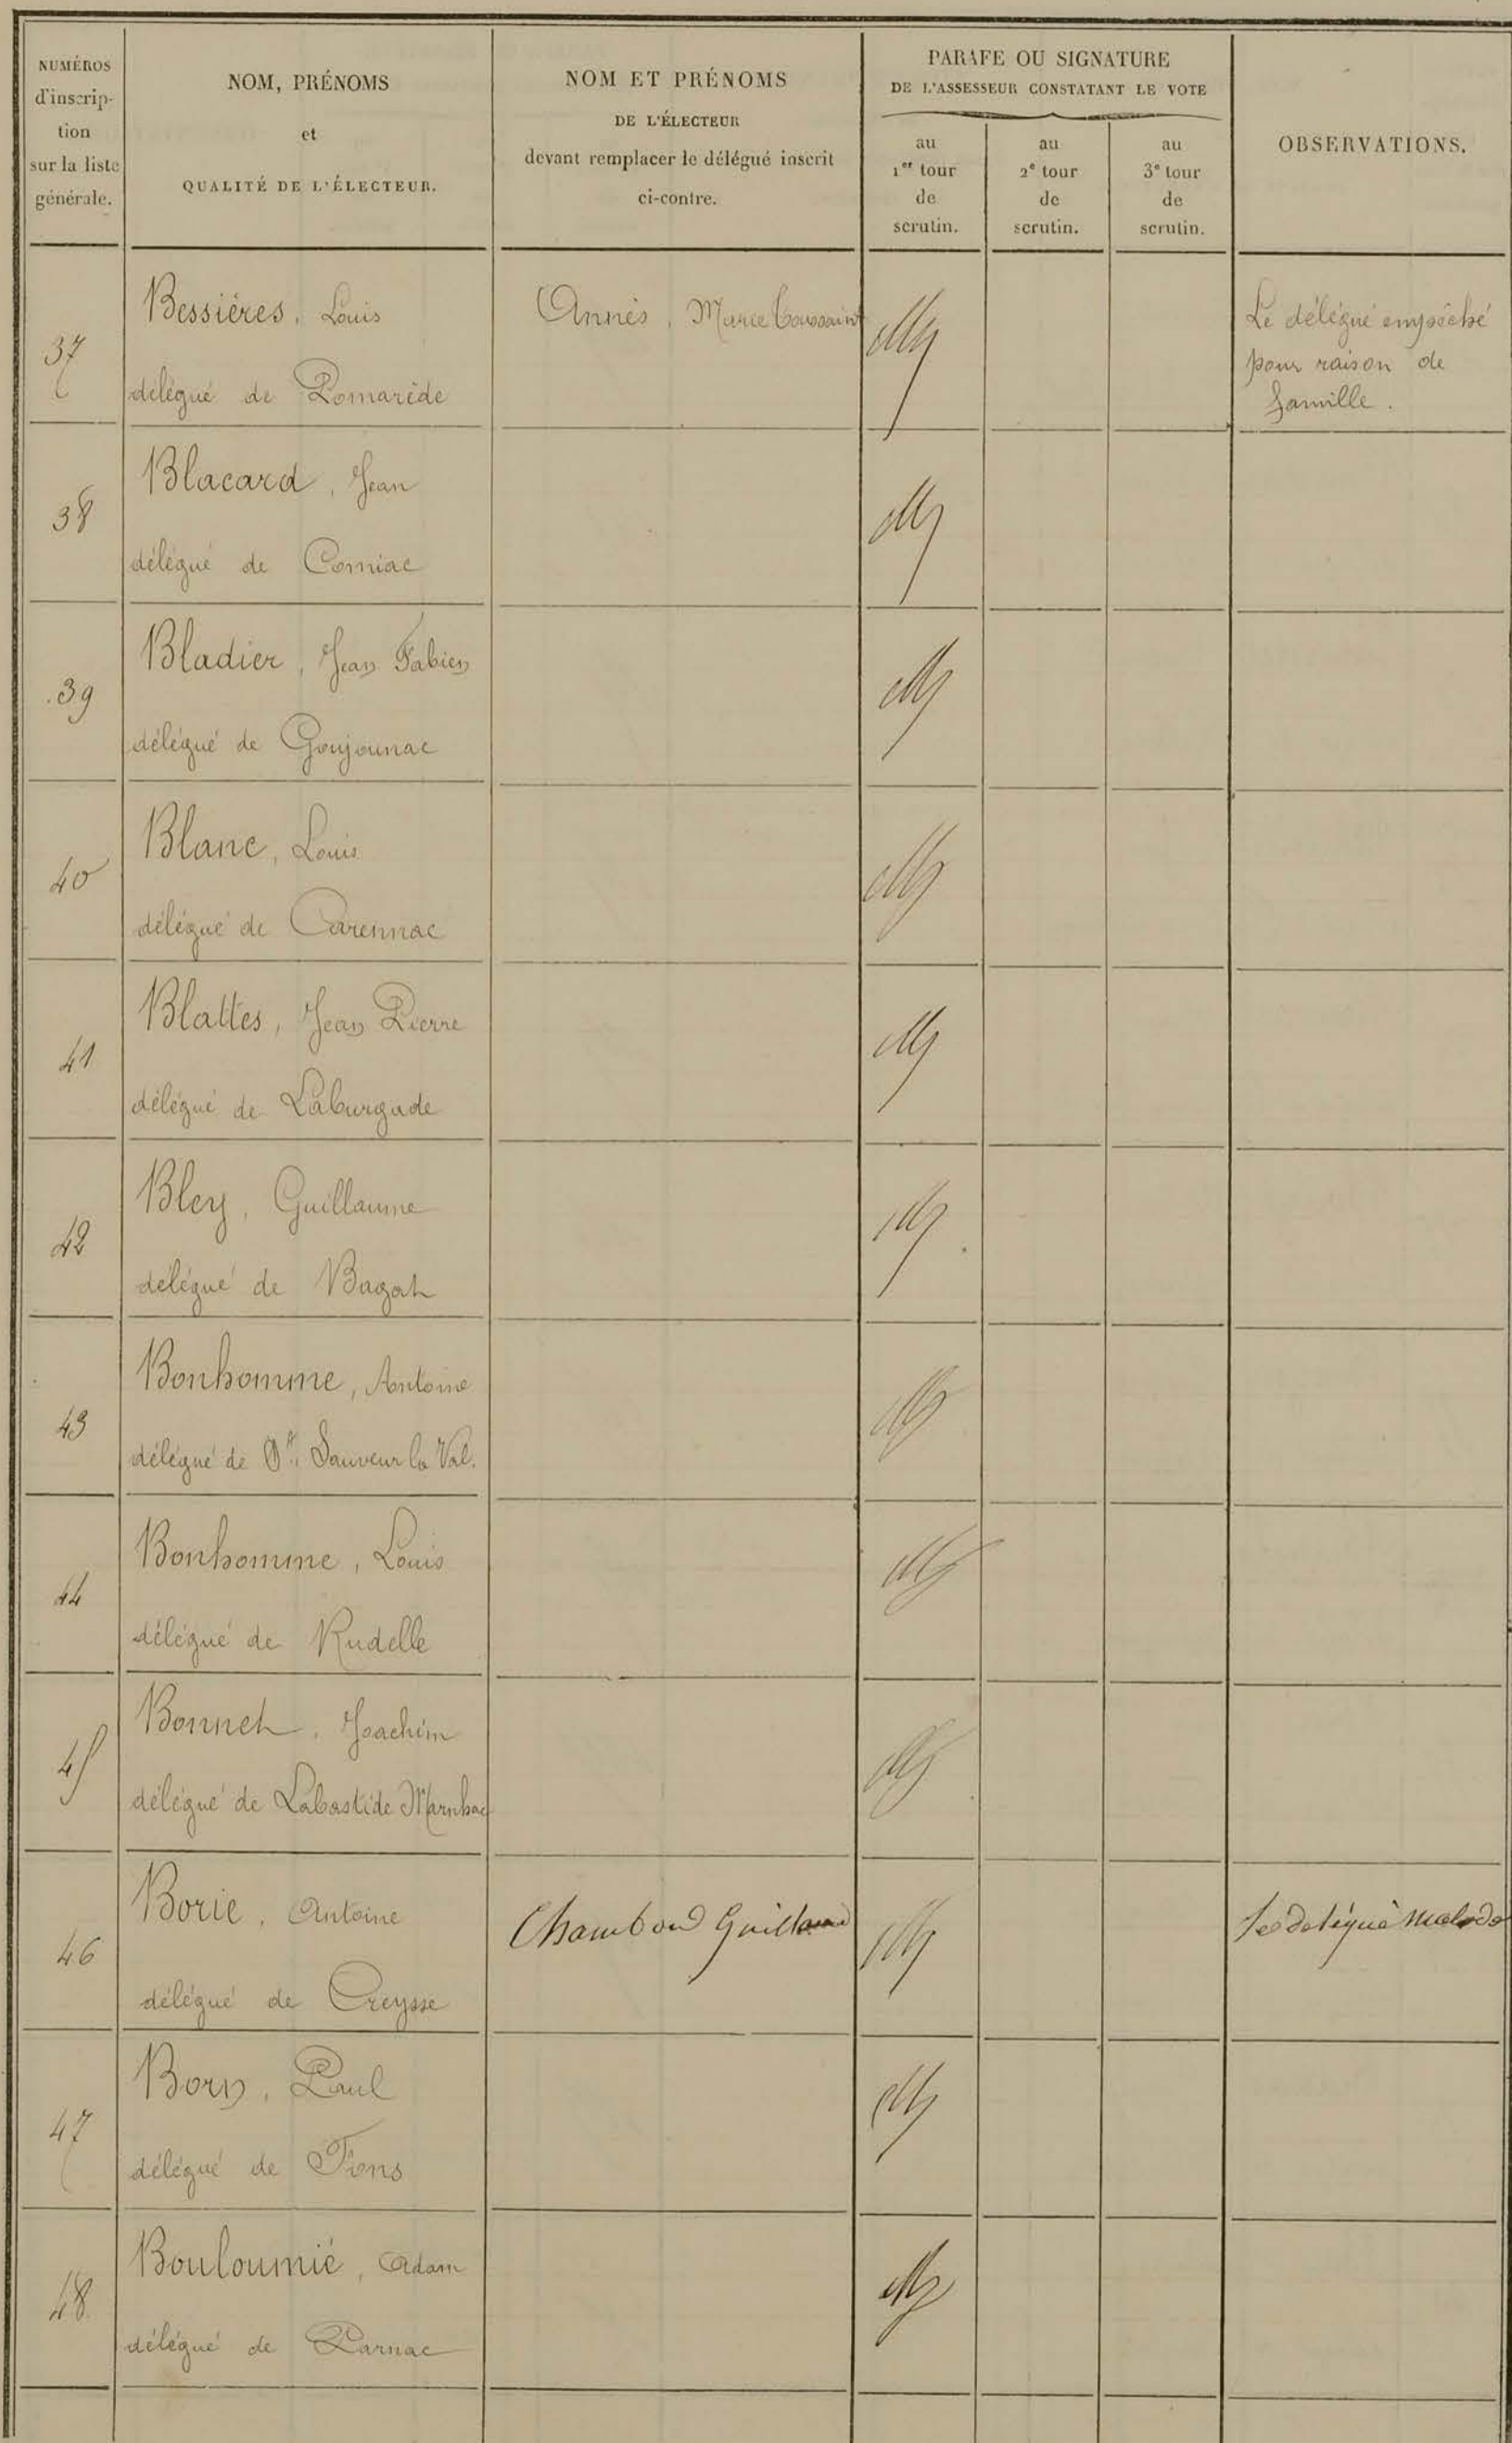 NUMÉROS
d'inscrip-
tion
sur la liste
générale.
NOM, PRÉNOMS
et
QUALITÉ DE L'ÉLECTEUR.
NOM ET PRÉNOMS
DE L'ÉLECTEUR
devant remplacer le délégué inscrit
ci-contre.
PARAFE OU SIGNATURE
DE L'ASSESSEUR CONSTATANT LE VOTE
au
1er tour
de
scrutin.
au
2e tour
de
scrutin.
au
3e tour
de
scrutin.
OBSERVATIONS.
37
Bessières, Louis
délégué de Pomarède
Annès, Marie Toussaint
Le délégué empêché
pour raison de
famille.
38
Blacard, Jean
délégué de Comiac
39
Bladier, Jean Fabien
délégué de Goujounac
40
Blanc, Louis
délégué de Carennac
41
Blattes, Jean Pierre
délégué de Laburgade
42
Bley, Guillaume
délégué de Bagat
43
Bonhomme, Antoine
délégué de St Sauveur la Val.
44
Bonhomme, Louis
délégué de Rudelle
45
Bonnet, Joachim
délégué de Labastide Marnhac
46
Borie, Antoine
délégué de Creysse
Guillaume
délégué malade
47
Born, Paul
délégué de Fons
48
Bouloumié, Adam
délégué de Parnac